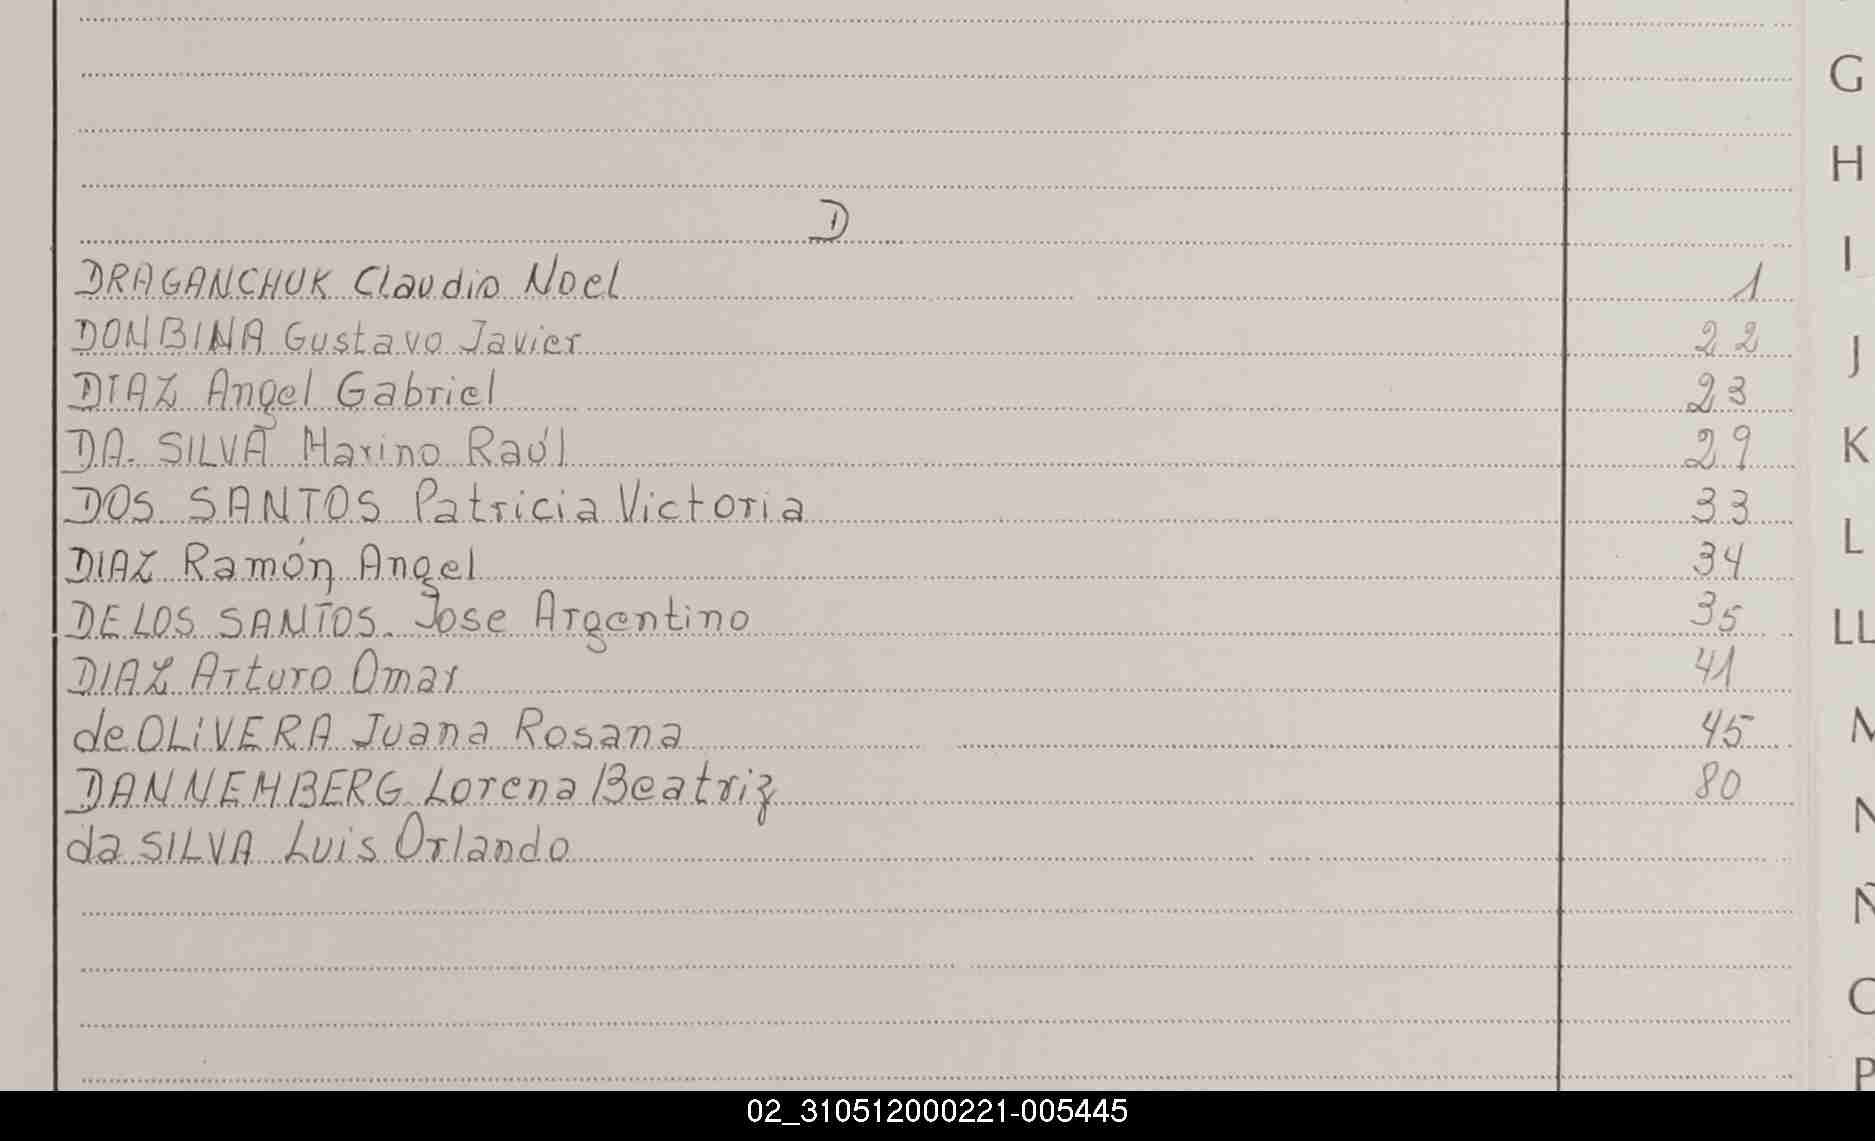 G
H
D
I
DRAGANCHUK Claudio Noel 1
DONBINA Gustavo Javier 22
J
DIAZ Angel Gabriel 23
DA. SILVA Marino Raúl 29
K
DOS SANTOS Patricia Victoria 33
L
DIAZ Ramón Angel 34
DE LOS SANTOS. Jose Argentino 35
LL
DIAZ Arturo Omar 41
de OLiVERA Juana Rosana 45
M
DANNEMBERG Lorena Beatriz 80
N
da SILVA Luis Orlando
Ñ
O
P
02_310512000221-005445